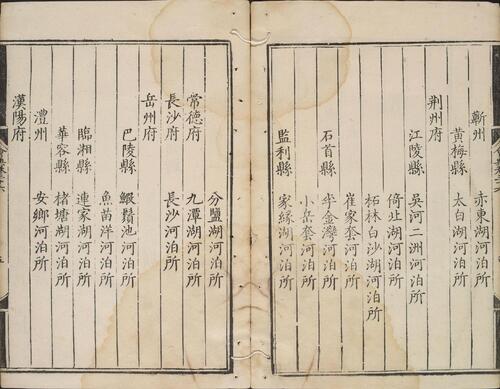 蘄州 赤東湖河泊所
黃梅縣 太白湖河泊所
荆州府
江陵縣 吳河二洲河泊所
倚北湖河泊所
柘林白沙湖河泊所
崔家套河泊所
石首縣 半金灣河泊所
小岳套河泊所
監利縣 家緣湖河泊所
分鹽湖河泊所
常德府 九潭湖河泊所
長沙府 長沙河泊所
岳州府
巴陵縣 鰕鬚池河泊所
魚苗洋河泊所
臨湘縣 連家湖河泊所
華容縣 楮塘湖河泊所
澧州 安鄉河泊所
漢陽府